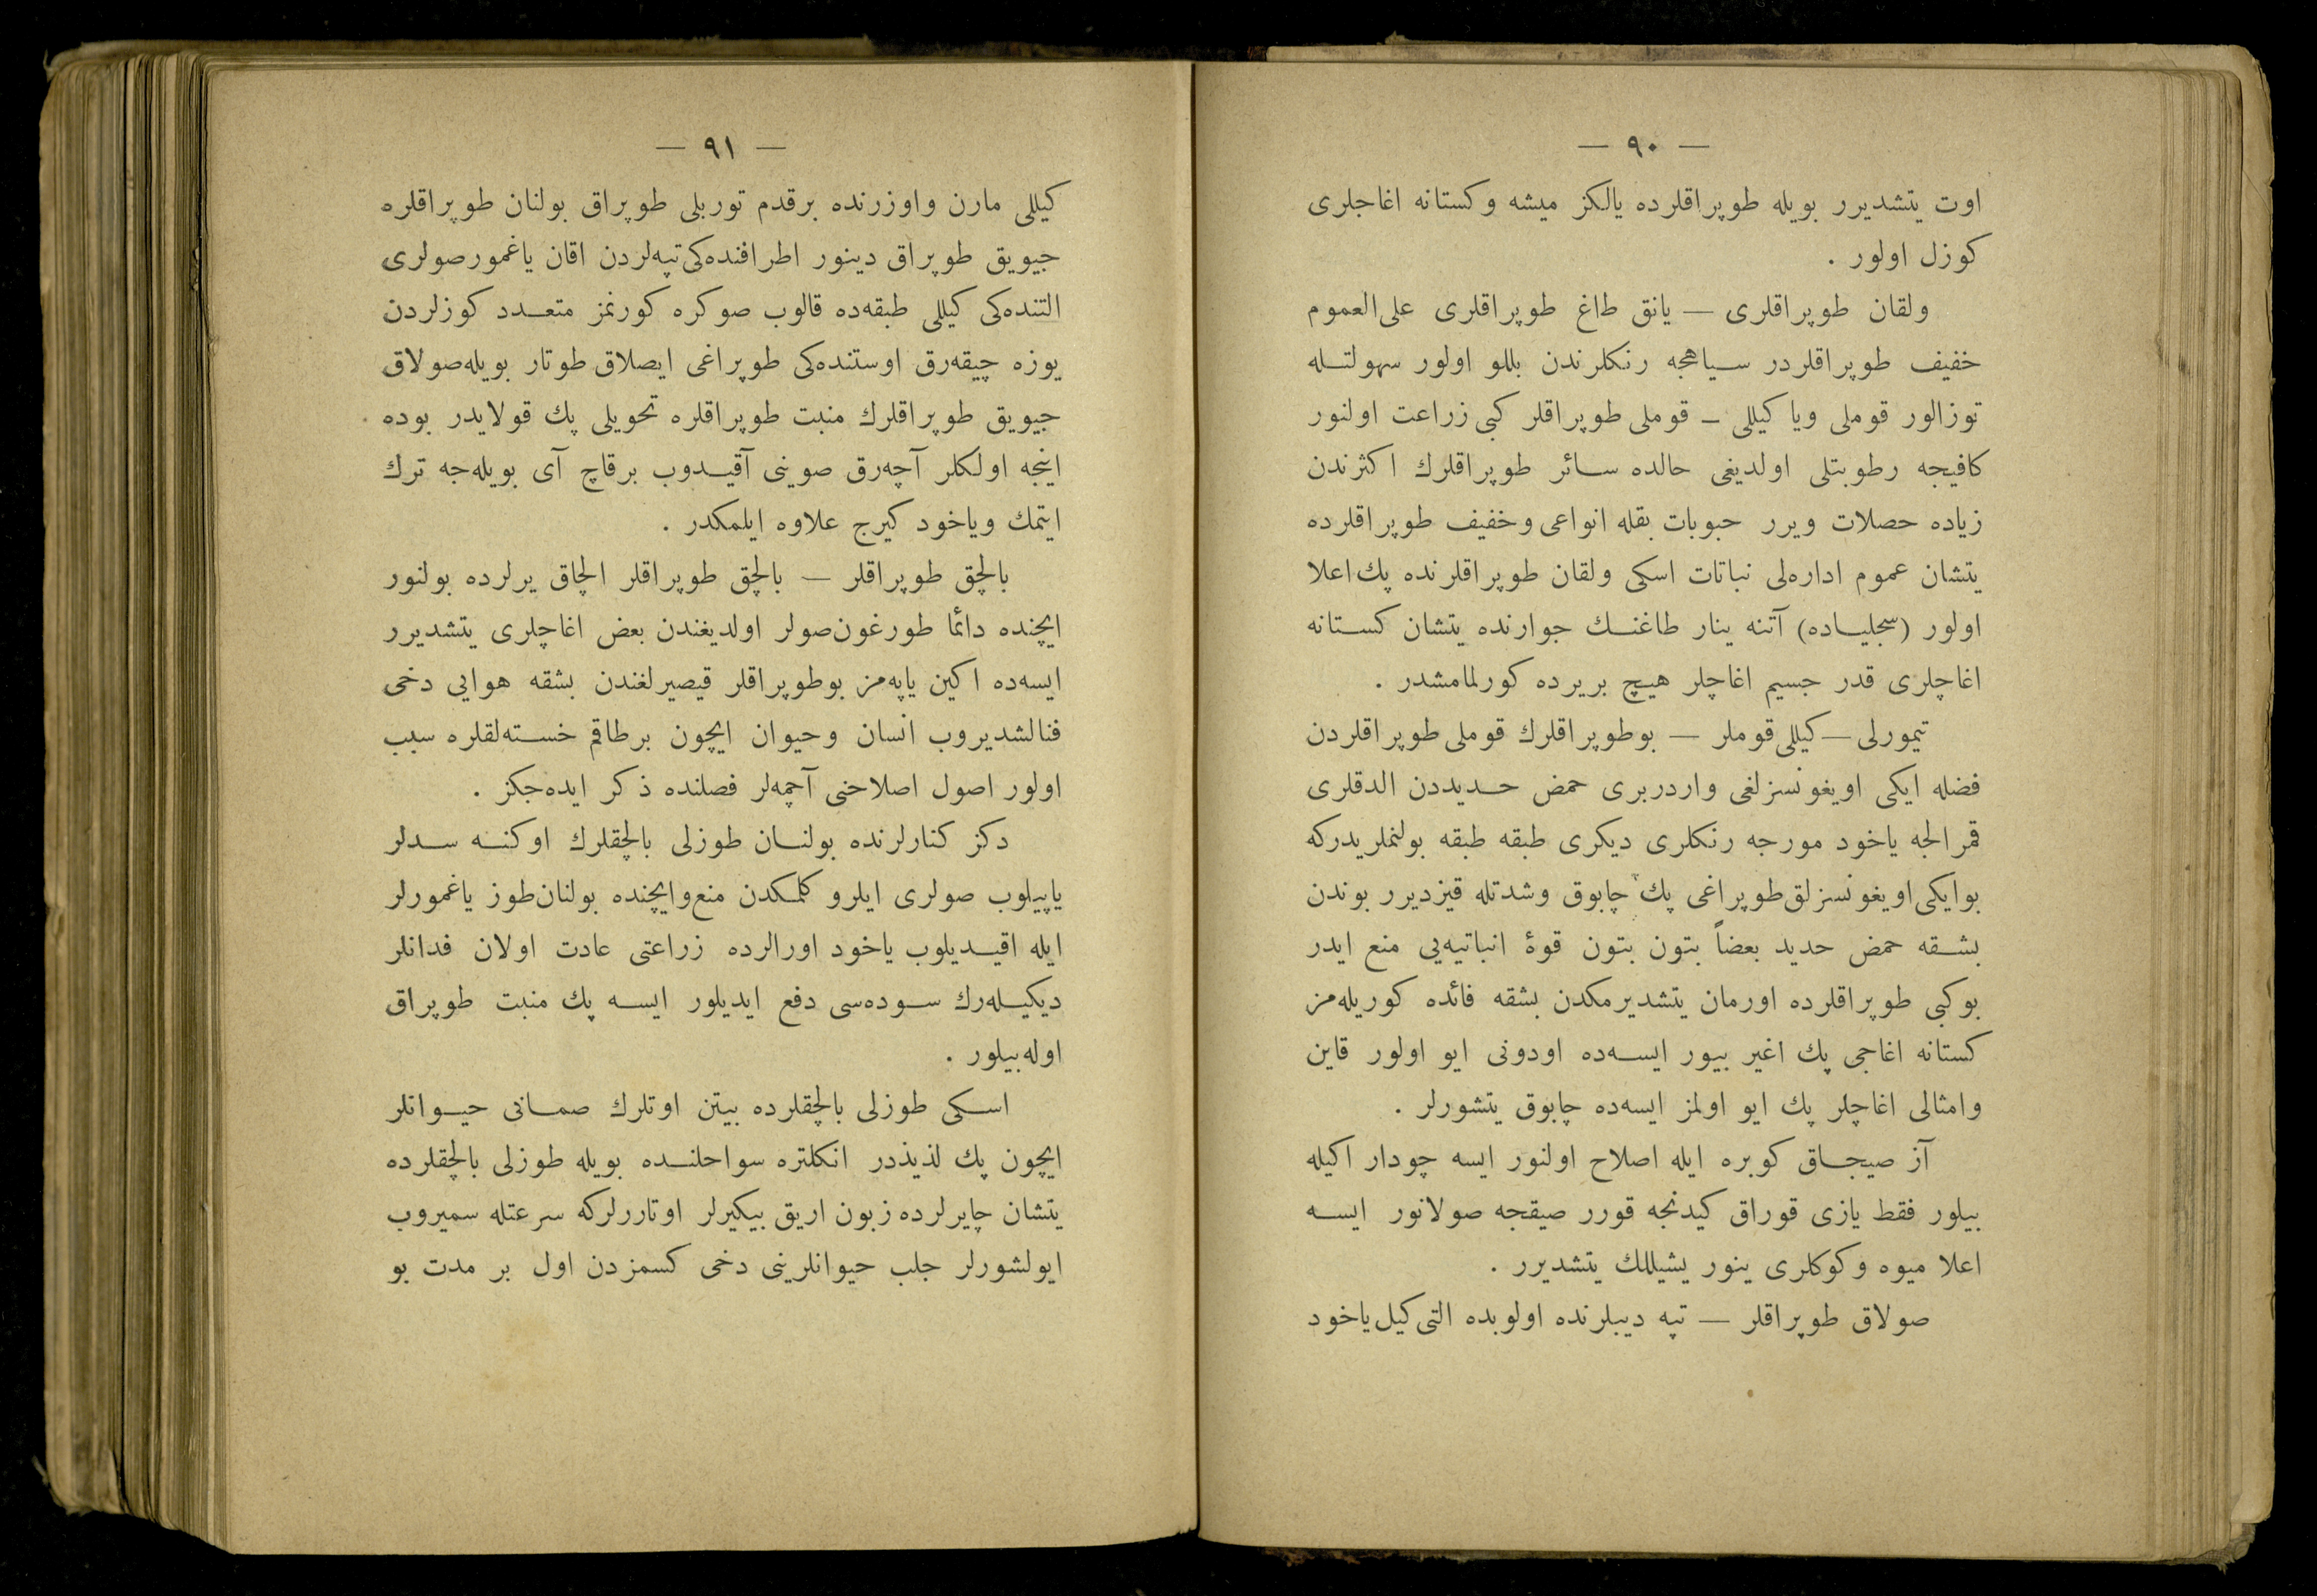 — ٩٠ —
اوت يتشديرر بويله طوپراقلرده يالكز ميشه وكستانه اغاجلری
كوزل اولور .
ولقان طوپراقلری — يانق طاغ طوپراقلری علی‌العموم
خفيف طوپراقلردر سياهجه رنكلرندن بللو اولور سهولتله
توزالور قوملی ويا كيللی — قوملی طوپراقلر كبی زراعت اولنور
كافيجه رطوبتلی اولديغی حالده سائر طوپراقلرك اكثرندن
زياده حصلات ويرر حبوبات بقله انواعی وخفيف طوپراقلرده
يتشان عموم اداره‌لی نباتات اسكی ولقان طوپراقلرنده پك اعلا
اولور (سجلياده) آتنه ينار طاغنك جوارنده يتشان كستانه
اغاچلری قدر جسيم اغاچلر هيچ بريرده كورلمامشدر .
تيمورلی — كيللی قوملر — بوطوپراقلرك قوملی طوپراقلردن
فضله ايكی اويغونسزلغی واردربری حمض حديددن الدقلری
قمرالجه ياخود مورجه رنكلری ديكری طبقه طبقه بولنملريدركه
بوايكی اويغونسزلق طوپراغی پك چابوق وشدتله قيزديرر بوندن
بشقه حمض حديد بعضاً بتون بتون قوۀ انباتيه‌يی منع ايدر
بوكبی طوپراقلرده اورمان يتشديرمكدن بشقه فائده كوريله‌مز
كستانه اغاجی پك اغير بيور ايسه‌ده اودونی ايو اولور قاين
وامثالی اغاچلر پك ايو اولمز ايسه‌ده چابوق يتشورلر .
آز صيجاق كوبره ايله اصلاح اولنور ايسه چودار اكيله
بيلور فقط يازی قوراق كيدنجه قورر صيقجه صولانور ايسه
اعلا ميوه وكوكلری ينور يشيللك يتشديرر .
صولاق طوپراقلر — تپه ديبلرنده اولوبده التی كيل ياخود
— ٩١ —
كيللی مارن واوزرنده برقدم توربلی طوپراق بولنان طوپراقلره
جيويق طوپراق دينور اطرافنده‌كی تپه‌لردن اقان ياغمورصولری
التنده‌كی كيللی طبقه‌ده قالوب صوكره كورنمز متعدد كوزلردن
يوزه چيقه‌رق اوستنده‌كی طوپراغی ايصلاق طوتار بويله صولاق
جيويق طوپراقلرك منبت طوپراقلره تحويلی پك قولايدر بوده
اينجه اولكلر آچه‌رق صوينی آقيدوب برقاچ آی بويله‌جه ترك
ايتمك وياخود كيرج علاوه ايلمكدر .
بالچق طوپراقلر — بالچق طوپراقلر الچاق يرلرده بولنور
ايچنده دائما طورغون‌صولر اولديغندن بعض اغاچلری يتشديرر
ايسه‌ده اكين ياپه‌مز بوطوپراقلر قيصيرلغندن بشقه هوايی دخی
فنالشديروب انسان وحيوان ايچون برطاقم خسته‌لقلره سبب
اولور اصول اصلاحنی آچمه‌لر فصلنده ذكر ايده‌جكز .
دكز كنارلرنده بولنان طوزلی بالچقلرك اوكنه سدلر
ياپيلوب صولری ايلرو كلمكدن منع وايچنده بولنان طوز ياغمورلر
ايله اقيديلوب ياخود اورالرده زراعتی عادت اولان فدانلر
ديكيله‌رك سوده‌سی دفع ايديلور ايسه پك منبت طوپراق
اوله‌بيلور .
اسكی طوزلی بالچقلرده بيتن اوتلرك صمانی حيوانلر
ايچون پك لذيذدر انكلتره سواحلنده بويله طوزلی بالچقلرده
يتشان چايرلرده زبون اريق بيكيرلر اوتاررلركه سرعتله سميروب
ايولشورلر جلب حيوانلرينی دخی كسمزدن اول بر مدت بو